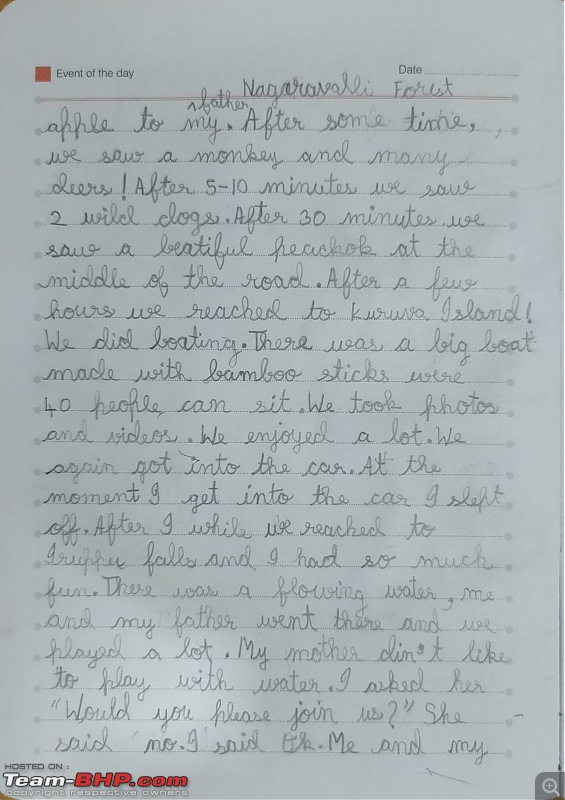 Event of the day
Date
Nagaravalli Forest
father
apple to my. After some time,
we saw a monkey and many
deers! After 5-10 minutes we saw
2 wild dogs. After 30 minutes we
saw a beatiful peackok at the
middle of the road. After a few
hours we reached to Kuruva Island!
We did boating. There was a big boat
made with bamboo sticks were
40 people can sit. We took photos
and videos. We enjoyed a lot. We
again got into the car. At the
moment I get into the car I slept
off. After I while we reached to
Iruppu falls and I had so much
fun. There was a flowing water, me
and my father went there and we
played a lot. My mother din't like
to play with water. I asked her
"Would you please join us?" She
said no. I said Ok. Me and my
HOSTED ON :
Team-BHP.com
copyright respective owners